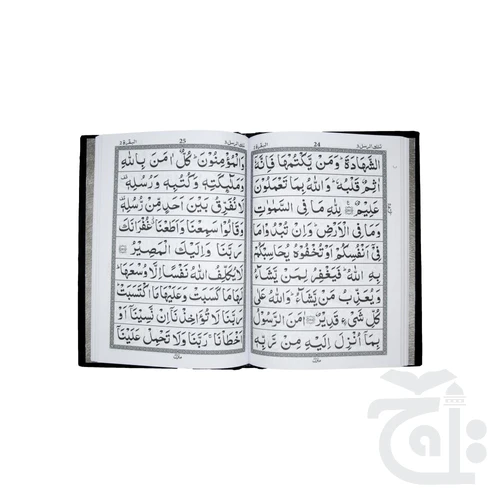 تلك الرسل ٣ 24 البقرة ٢
الشَّهَادَةَ ؕ وَمَنْ يَّكْتُمْهَا فَاِنَّهٗۤ
اٰثِمٌ قَلْبُهٗ ؕ وَاللّٰهُ بِمَا تَعْمَلُوْنَ
عَلِيْمٌ لِلّٰهِ مَا فِى السَّمٰوٰتِ
وَمَا فِى الْاَرْضِ ؕ وَاِنْ تُبْدُوْا مَا
فِىْۤ اَنْفُسِكُمْ اَوْ تُخْفُوْهُ يُحَاسِبْكُمْ
بِهِ اللّٰهُ ؕ فَيَغْفِرُ لِمَنْ يَّشَآءُ
وَيُعَذِّبُ مَنْ يَّشَآءُ ؕ وَاللّٰهُ عَلٰى
كُلِّ شَىْءٍ قَدِيْرٌ اٰمَنَ الرَّسُوْلُ
بِمَاۤ اُنْزِلَ اِلَيْهِ مِنْ رَّبِّهٖ
تلك الرسل ٣ 25 البقرة ٢
وَالْمُؤْمِنُوْنَ ؕ كُلٌّ اٰمَنَ بِاللّٰهِ
وَمَلٰٓئِكَتِهٖ وَكُتُبِهٖ وَرُسُلِهٖ
لَا نُفَرِّقُ بَيْنَ اَحَدٍ مِّنْ رُّسُلِهٖ
وَقَالُوْا سَمِعْنَا وَاَطَعْنَا غُفْرَانَكَ
رَبَّنَا وَاِلَيْكَ الْمَصِيْرُ
لَا يُكَلِّفُ اللّٰهُ نَفْسًا اِلَّا وُسْعَهَا ؕ
لَهَا مَا كَسَبَتْ وَعَلَيْهَا مَا اكْتَسَبَتْ ؕ
رَبَّنَا لَا تُؤَاخِذْنَاۤ اِنْ نَّسِيْنَاۤ اَوْ
اَخْطَاْنَا ۚ رَبَّنَا وَلَا تَحْمِلْ عَلَيْنَاۤ